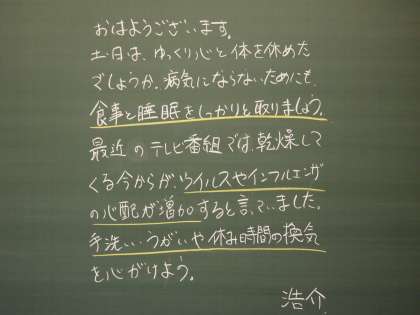 おはようございます。
土日は、ゆっくり心と体を休めた
でしょうか。病気にならないためにも、
食事と睡眠をしっかりと取りましょう。
最近のテレビ番組では、乾燥して
くる今からが、ウイルスやインフルエンザ
の心配が増加すると言っていました。
手洗い、うがいや休み時間の換気
を心がけよう。
浩介